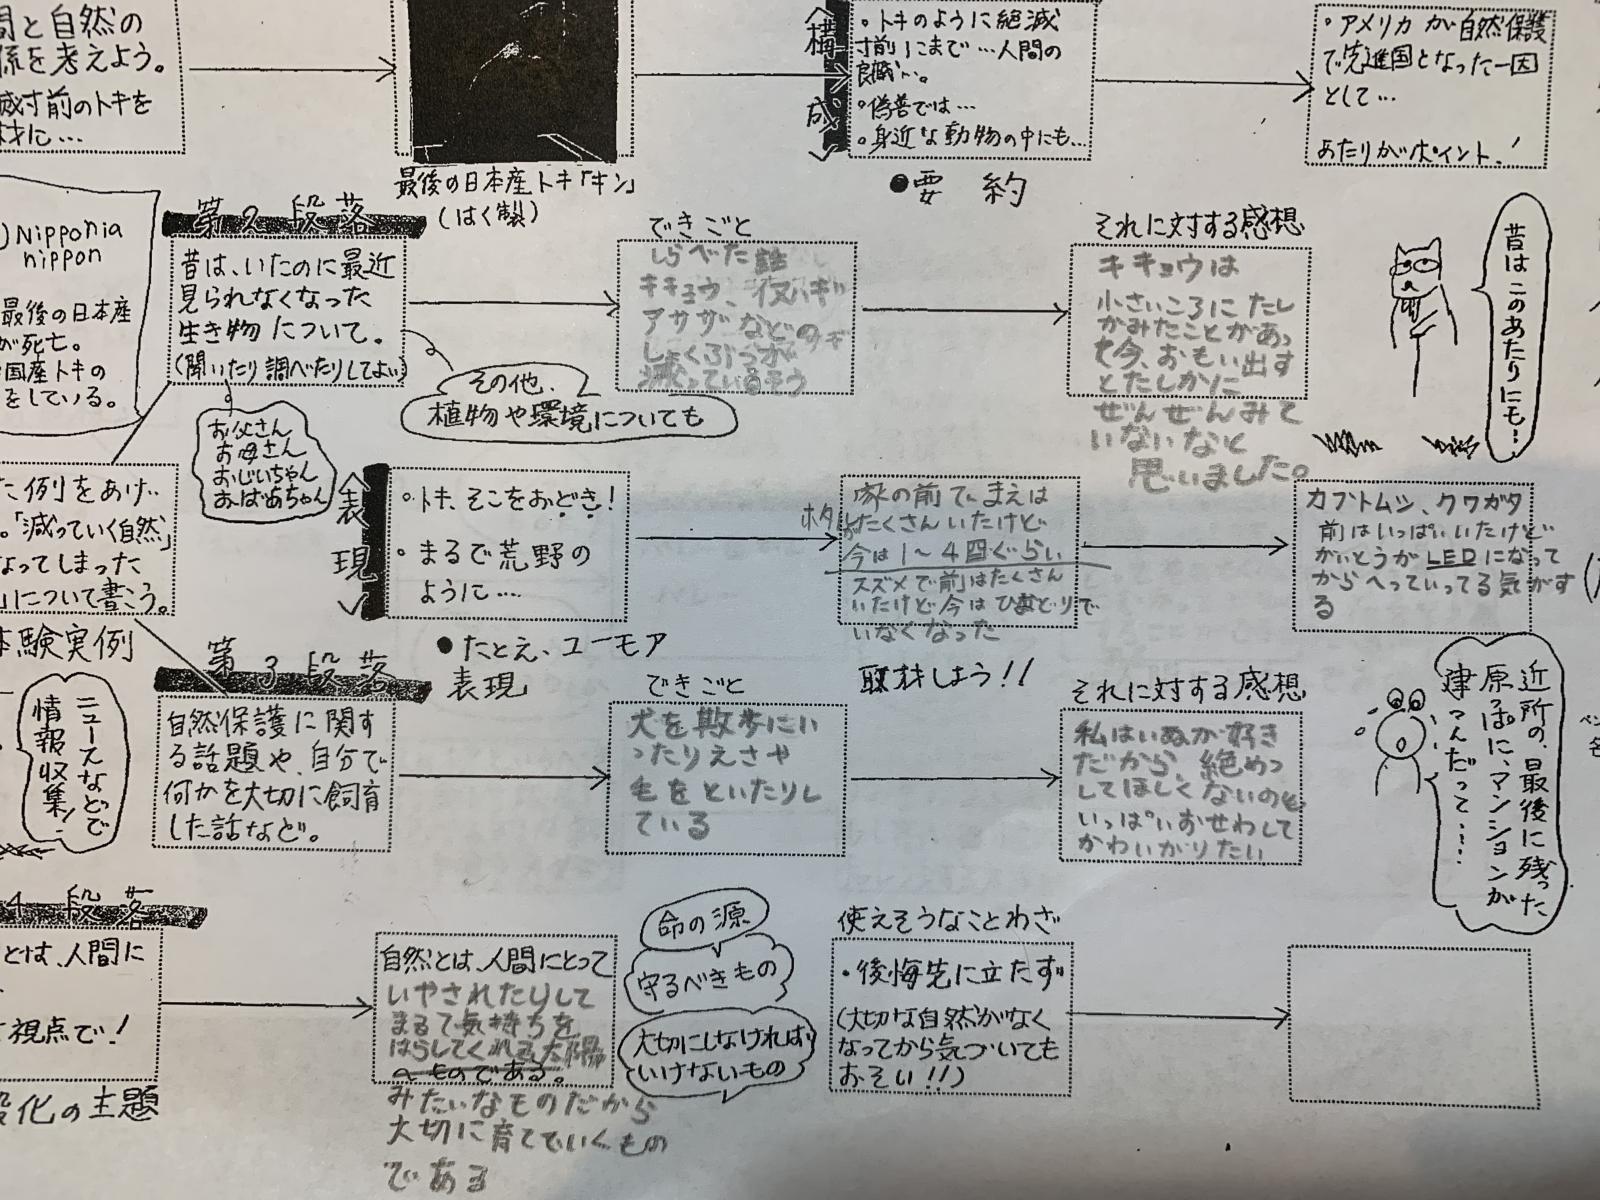 間と自然の
係を考えよう。
滅寸前のトキを
材に…
最後の日本産トキ「キン」
(はく製)
＜構成＞
・トキのように絶滅
寸前にまで…人間の
良識…。
・偽善では…
・身近な動物の中にも…
●要約
・アメリカが自然保護
で先進国となった一因
として…
あたりがポイント!
)Nipponia
nippon
最後の日本産
が死亡。
国産トキの
をしている。
第2段落
昔は、いたのに最近
見られなくなった
生き物について。
(聞いたり調べたりしてよい)
その他、
植物や環境についても
お父さん
お母さん
おじいちゃん
おばあちゃん
できごと
しらべた話
キキョウ、イヌハギ
アサザなどの
しょくぶつが
減っているそう
それに対する感想
キキョウは
小さいころにたし
かみたことがあっ
て今、おもい出す
とたしかに
ぜんぜんみて
いないなと
思いました。
昔はこのあたりにも…
た例をあげ…
。「減っていく自然」
なってしまった
」について書こう。
体験実例
＜表現＞
・トキ、そこをおどき!
・まるで荒野の
ように…
●たとえ、ユーモア
表現
ホタルが
家の前で、まえは
たくさんいたけど
今は1〜4匹ぐらい
スズメで前はたくさん
いたけど今はひとりで
いなくなった
取材しよう!!
カブトムシ、クワガタ
前はいっぱいいたけど
がいとうがLEDになって
からへっていってる気がす
る
ニュースなどで
情報収集!
第3段落
自然保護に関す
る話題や、自分で
何かを大切に飼育
した話など。
できごと
犬を散歩にい
ったりえさや
毛をといたりし
ている
それに対する感想
私はいぬが好き
だから、絶めつ
してほしくないので
いっぱいおせわして
かわいがりたい
近所の、最後に残った
原っぱに、マンションが
建つんだって……
4段落
とは、人間に
視点で!
段化の主題
自然とは、人間にとって
いやされたりして
まるで気持ちを
はらしてくれる太陽
のものである。
みたいなものだから
大切に育てていくもの
である
命の源
守るべきもの
大切にしなければ
いけないもの
使えそうなことわざ
・後悔先に立たず
(大切な自然がなく
なってから気づいても
おそい!!)